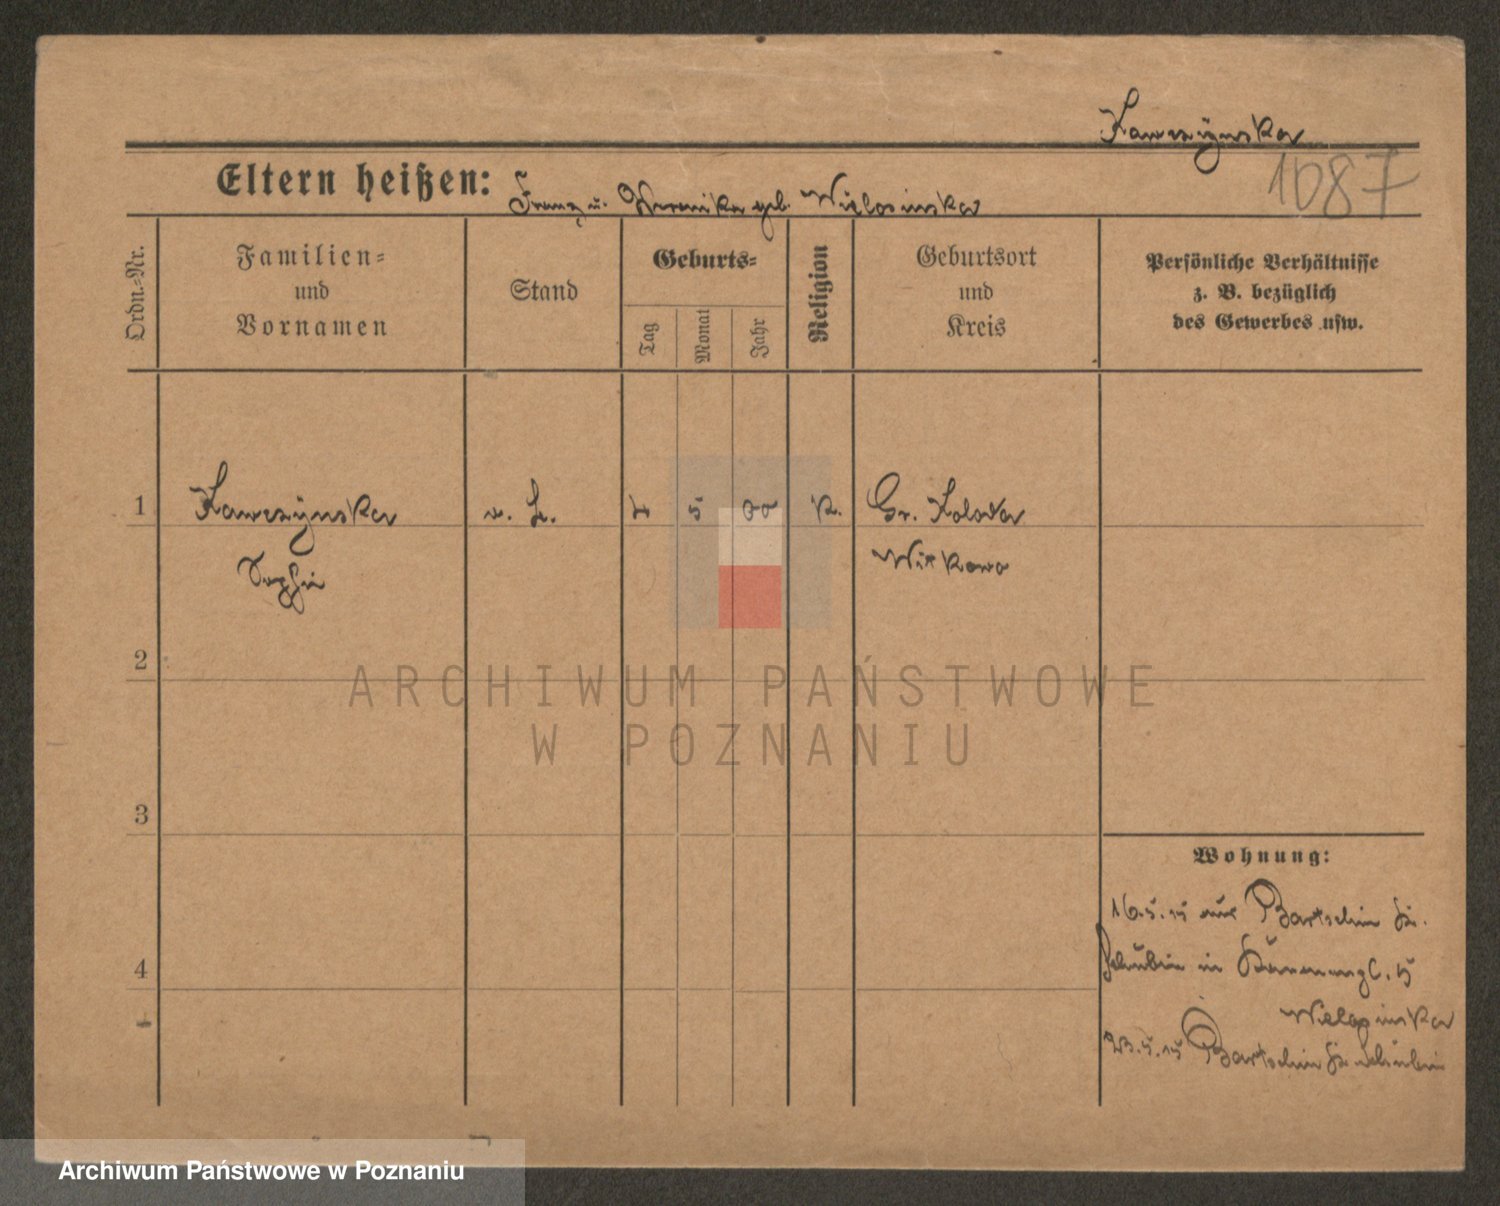 Kawczynska
1087
Eltern heißen: Franz u. Veronika geb. Wielosinska
Ordn.-Nr.
Familien-
und
Vornamen
Stand
Geburts-
Tag
Monat
Jahr
Religion
Geburtsort
und
Kreis
Persönliche Verhältnisse
z. B. bezüglich
des Gewerbes usw.
1 Kawczynska 5 k. Gr. Koloda
Sophie Witkowo
2
3
4
Wohnung:
16.5.15 aus Bartschin Kr.
Schubin in
Wielosinska
23.5.15 Bartschin Kr Schubin
ARCHIWUM PAŃSTWOWE
W POZNANIU
Archiwum Państwowe w Poznaniu